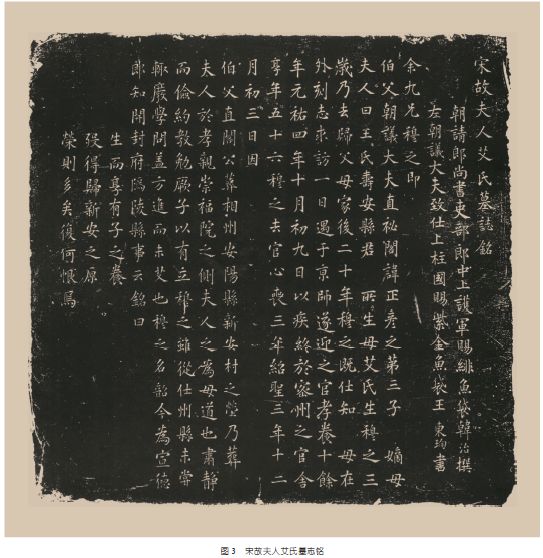 宋故夫人艾氏墓誌銘
朝請郎尚書吏部郎中上護軍賜緋魚袋韓治撰
左朝議大夫致仕上柱國賜紫金魚袋王東珣書
余九兄穆之即
伯父朝議大夫直祕閣諱正彥之第三子 嫡母
夫人曰王氏壽安縣君 所生母艾氏生穆之三
歲乃去歸父母家後二十年穆之既仕知 母在
外刻志求訪一日遇于京師遂迎之官孝養十餘
年元祐四年十月初九日以疾終於密州之官舍
享年五十六穆之去官心喪三年紹聖三年十二
月初三日因
伯父直閣公葬相州安陽縣新安村之塋乃葬
夫人於孝親崇福院之側夫人之為母道也肅靜
而儉約教勉厥子以有立穆之雖從仕州縣未嘗
輟廢學問蓋方進而未艾也穆之名韶今為宣德
郎知開封府鄢陵縣事云銘曰
生而享有子之養
歿得歸新安之原
榮則多矣復何恨焉
图3 宋故夫人艾氏墓志铭